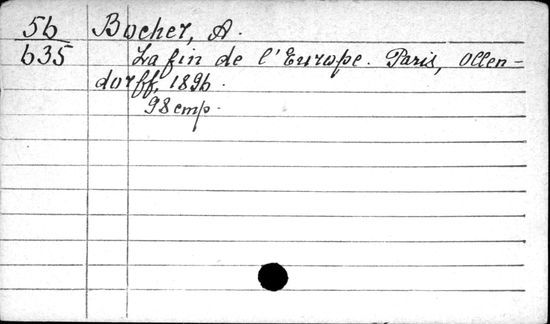 56 Bocher, A.
635 La fin de l'Europe. Paris, Ollen-
dorff, 1896.
98 стр.